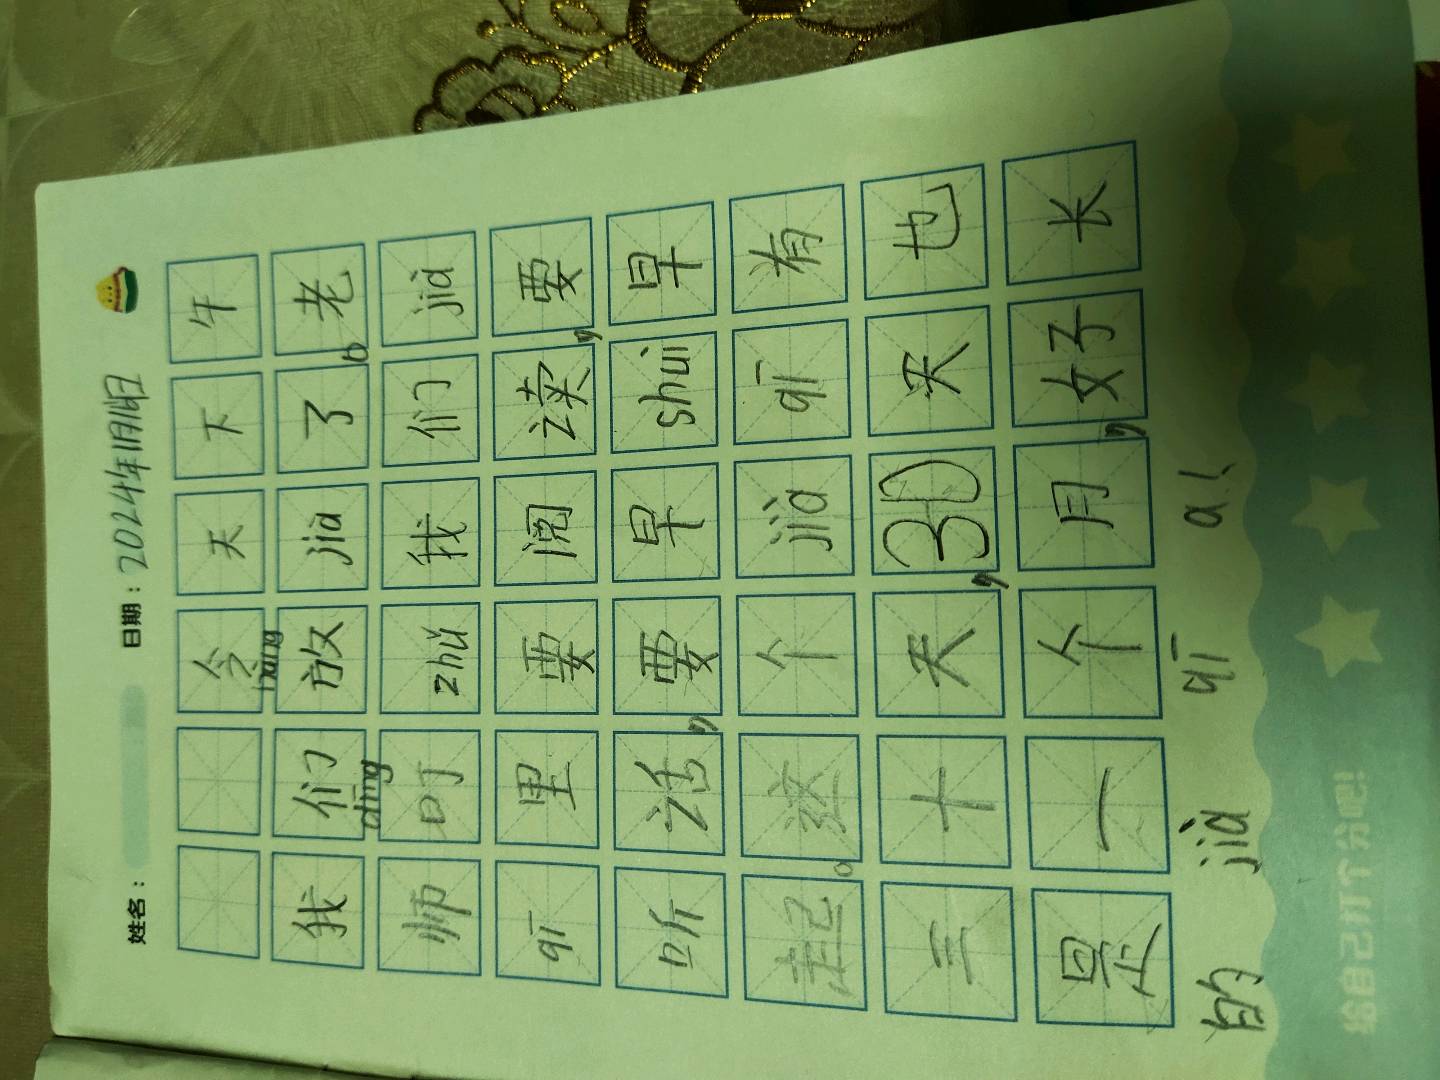 姓名： 日期：2024年1月14日
今天下午
我们放jià了,老
dīng
师叮zhǔ我们jià
qī里要阅读,要
听话,要早shuì早
起。这个jiàqī有
三十天,30天也
是一个月,好长
的jià qī a!
给自己打个分吧